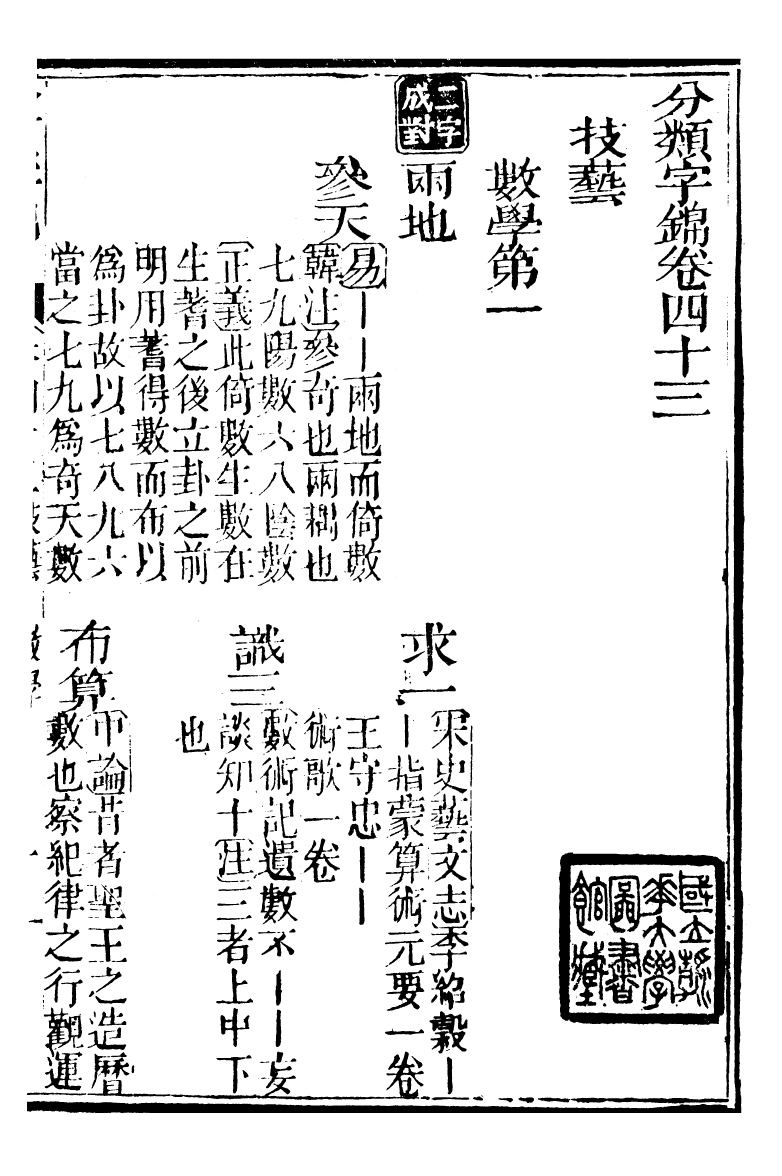 分類字錦卷四十三
技藝
數學第一
二字成對
兩地
參天
易｜｜兩地而倚數
韓注參奇也兩耦也
七九陽數六八陰數
正義此倚數生數在
生蓍之後立卦之前
明用蓍得數而布以
爲卦故以七八九六
當之七九爲奇天數
求一
宋史藝文志李紹穀｜
｜指蒙算術元要一卷
王守忠｜｜
術歌一卷
識三
數術記遺數不｜｜妄
談知十注三者上中下
也
布算
中論昔者聖王之造曆
數也察紀律之行觀運
國立
大學
圖書
館藏